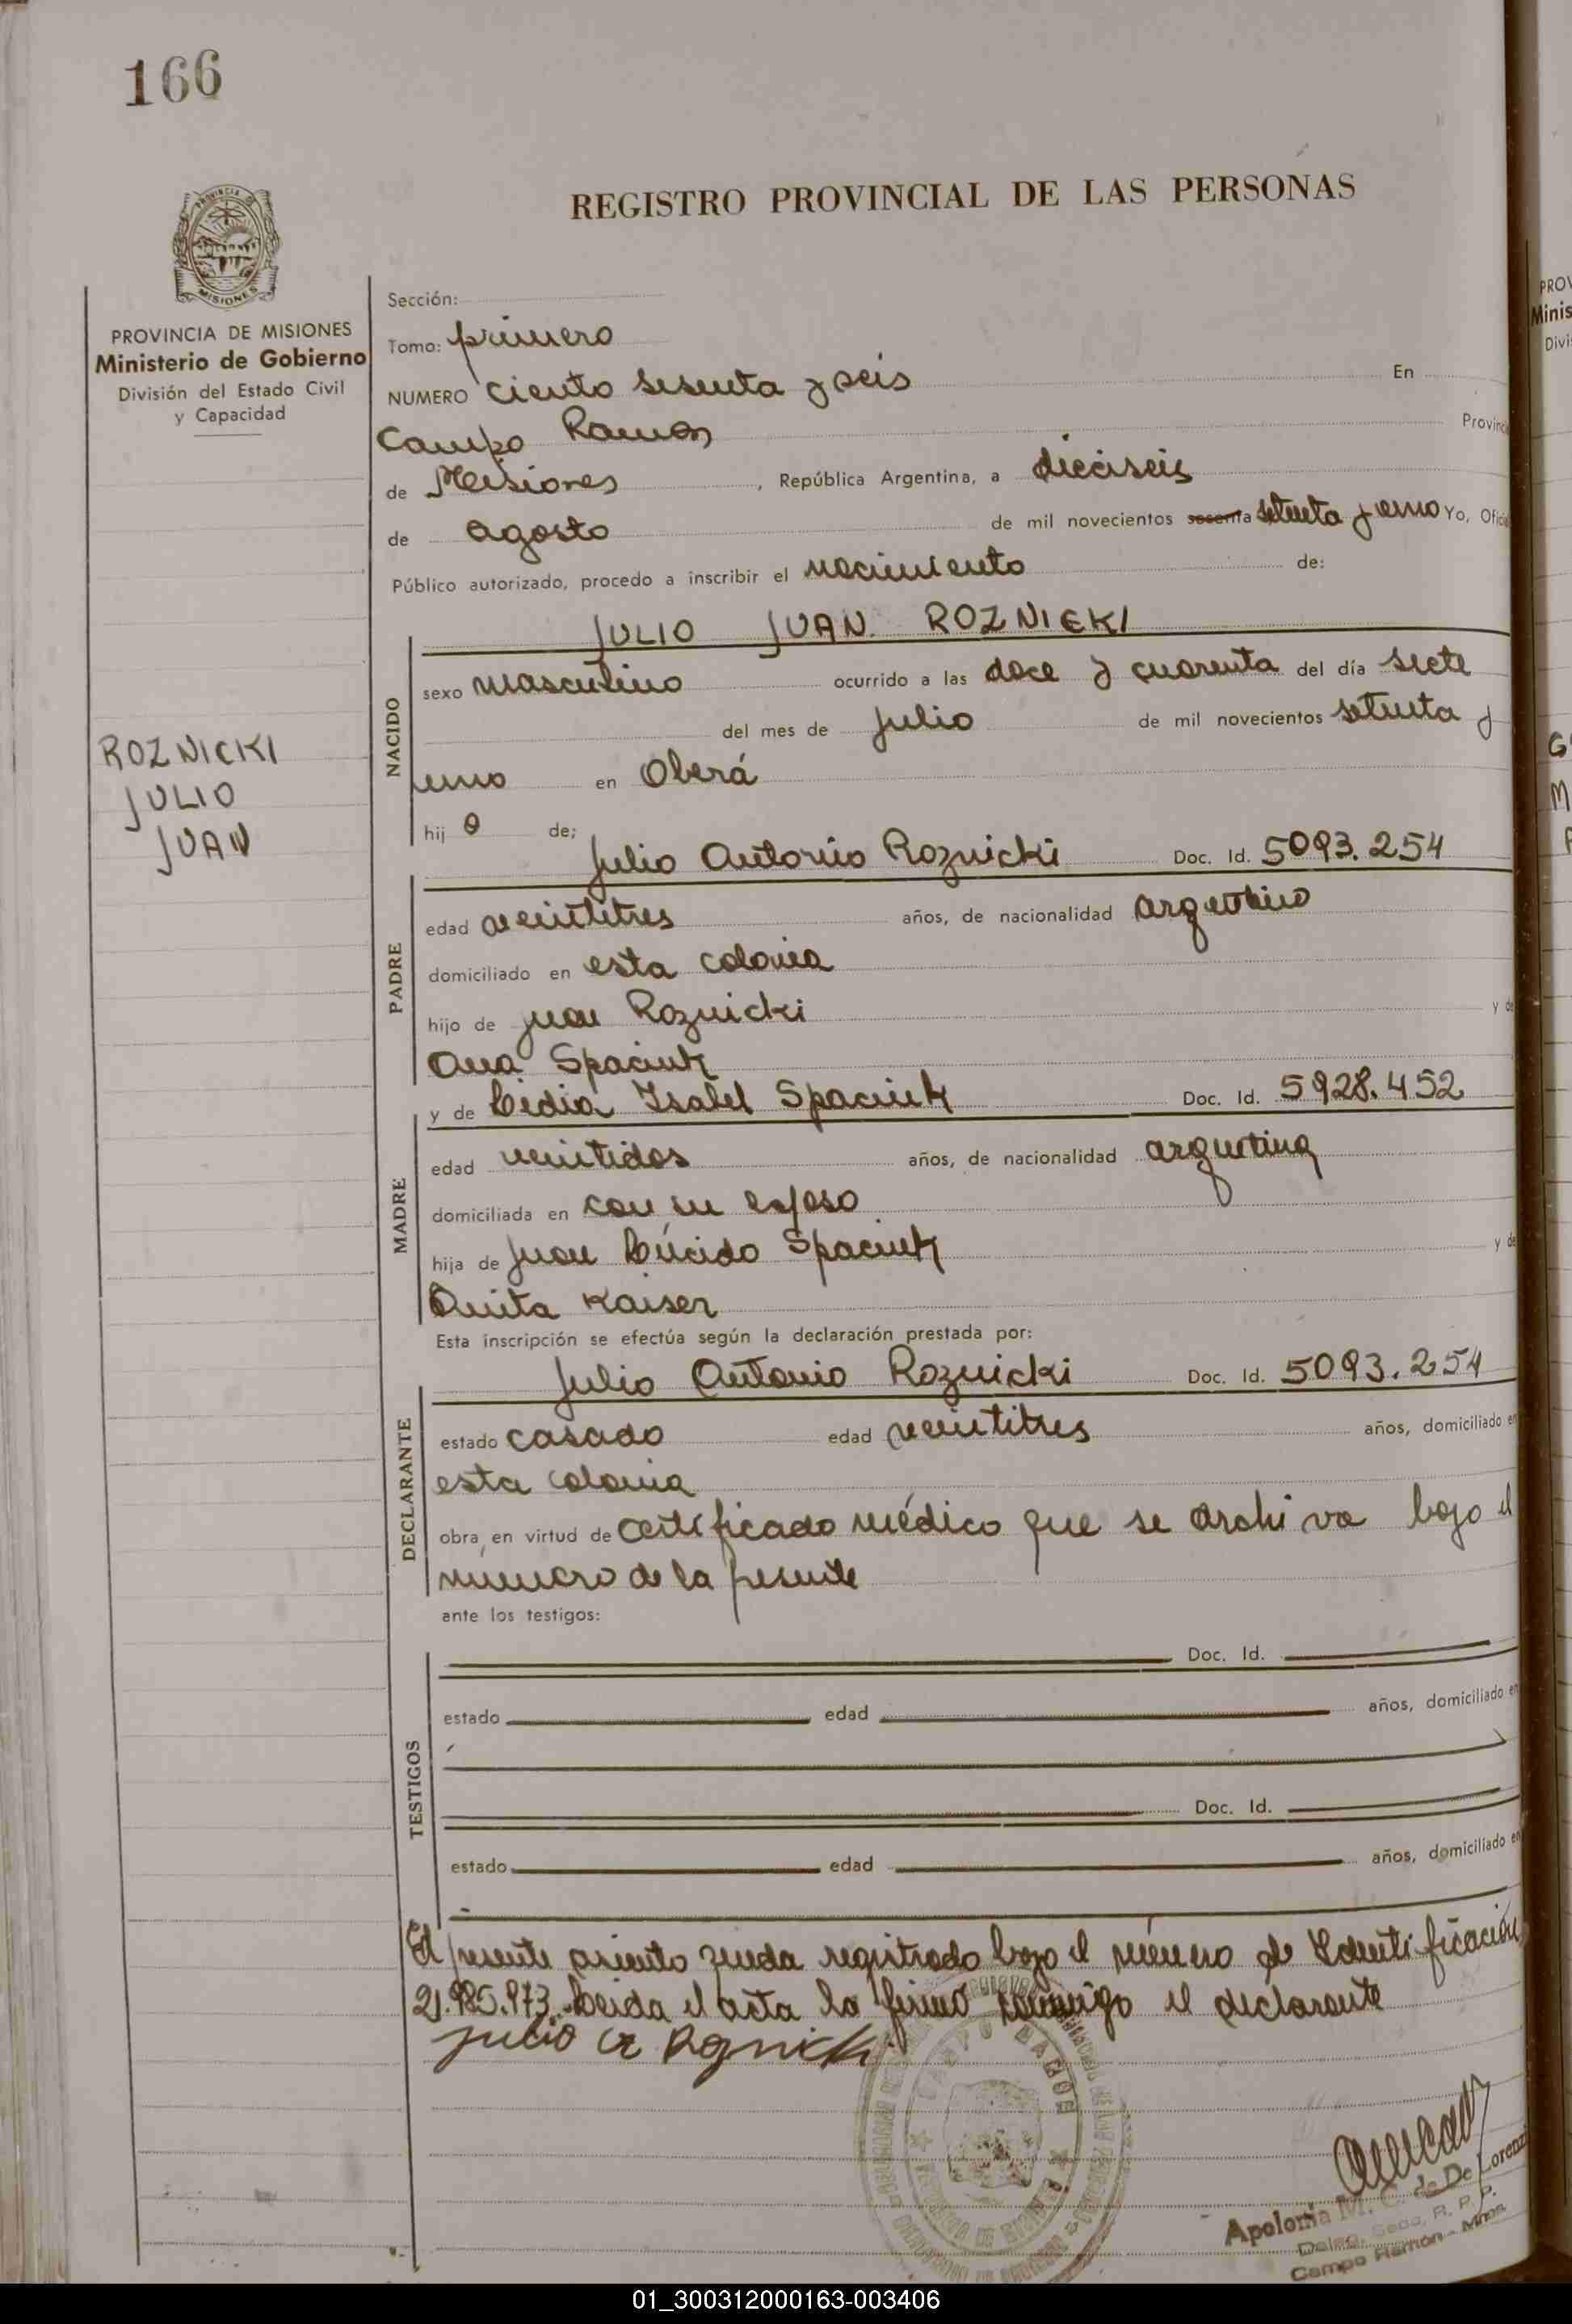 166
REGISTRO PROVINCIAL DE LAS PERSONAS
PROVINCIA
MISIONES
PROVINCIA DE MISIONES
Ministerio de Gobierno
División del Estado Civil
y Capacidad
ROZNICKI
JULIO
JUAN
Sección:
Tomo: primero
NUMERO ciento sesenta y seis En
Campo Ramon Provinc
de Misiones , República Argentina, a dieciseis
de agosto de mil novecientos sesenta setenta y uno Yo, Ofici
Público autorizado, procedo a inscribir el nacimiento de:
NACIDO
JULIO JUAN ROZNICKI
sexo masculino ocurrido a las doce y cuarenta del día siete
del mes de julio de mil novecientos setenta y
uno en Oberá
hij o de;
Julio Antonio Roznicki Doc. Id. 5093.254
PADRE
edad veintitres años, de nacionalidad argentino
domiciliado en esta colonia
hijo de Juan Roznicki y de
Ana Spaciuk
y de Lidia Isabel Spaciuk Doc. Id. 5928.452
MADRE
edad veintidos años, de nacionalidad argentina
domiciliada en con su esposo
hija de Juan Lúcido Spaciuk y de
Anita Kaiser
Esta inscripción se efectúa según la declaración prestada por:
Julio Antonio Roznicki Doc. Id. 5093.254
DECLARANTE
estado casado edad veintitres años, domiciliado en
esta colonia
obra, en virtud de certificado médico que se archiva bajo el
numero de la presente
ante los testigos:
TESTIGOS
Doc. Id.
estado edad años, domiciliado en
Doc. Id.
estado edad años, domiciliado en
El presente asiento queda registrado bajo el número de Identificación
21.985.973. Leida el acta la firmó conmigo el declarante
Julio A Roznicki
CAMPO RAMON
Apolonia M. C. de De Lorenzi
Deleg. Secc. R. P. P.
Campo Ramón - Mnes.
PROV
Minis
Divi
01_300312000163-003406